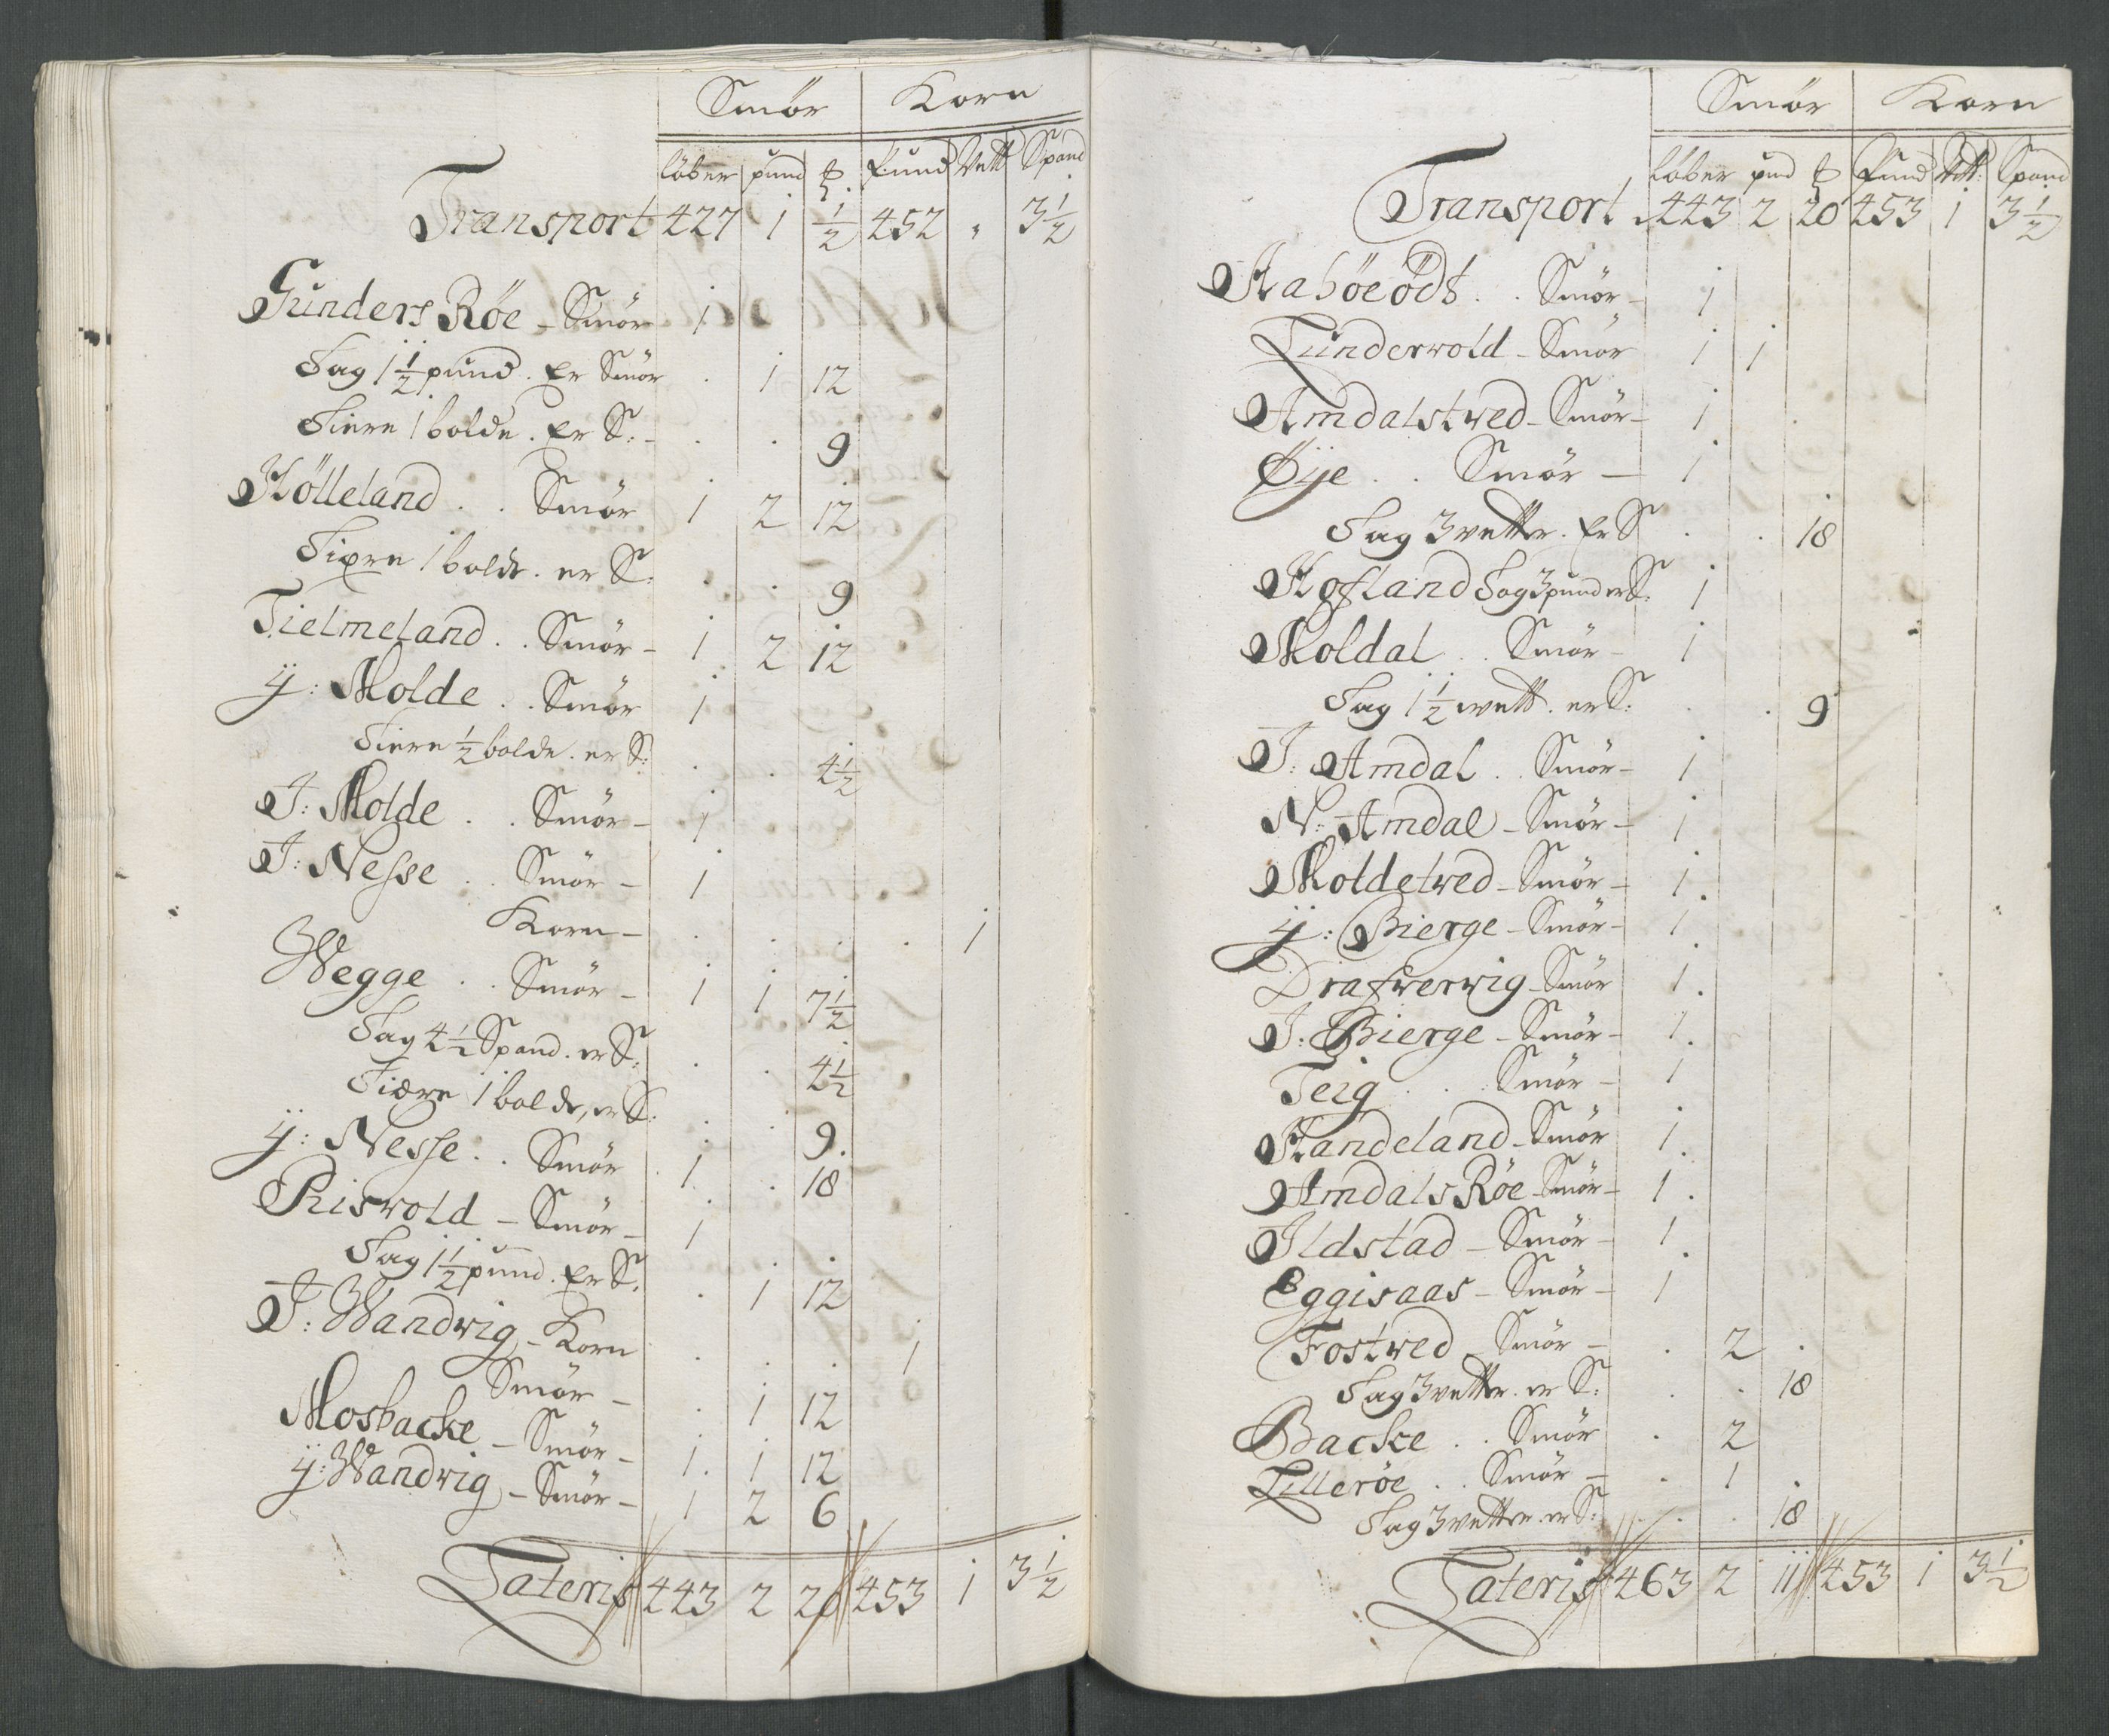 Smør Korn
løber pund ℔ Pund Vett Spand
Transport 427 1 1/2 452 „ 3 1/2
Gunders Røe - Smør 1
Sag 1 1/2 pund. Er Smør . 1 12
Tiere 1 bolde. Er S: - . . 9
Hölleland . . Smør 1 2 12
Tiere 1 bolde. er S: . . 9
Tielmeland . . Smør - 1 2 12
ÿ: Molde . . Smør 1
Tiere 1/2 bolde. er S: . . 4 1/2
J: Molde . . Smør - 1
J: Nesse . . Smør - 1
Korn - . . . . 1
Wegge . . Smør - 1 1 7 1/2
Sag 4 1/2 Spand. er S: . . 4 1/2
Tiære 1 bolde, er S: . . 9.
ÿ: Nesse . . Smør 1 . 18
Risvold - Smør - 1
Sag 1 1/2 pund. Er S. . 1 12
J: Wandvig - Korn . . . 1
Smør - . 1 12
Mosbacke - Smør - 1. 1 12
ÿ: Wandvig - Smør - 1 2 6
Lateris 443 2 20 453 1 3 1/2
Smør Korn
løber pund ℔ Pund Vett: Spand
Transport 443 2 20 453 1 3 1/2
Aabøeödt . . Smør - 1
Lunderwold - Smør 1 1
Amdalstved - Smør - 1
Øije . . Smør - 1
Sag 3 vetter. Er S . . 18
Hofland Sag 3 pund er S: 1
Moldal . . Smør - 1
Sag 1 1/2 vett. er S: . . 9
J: Amdal . . Smør - 1
N: Amdal - Smør - 1
Moldetved - Smør - 1.
ÿ: Bierge - Smør - 1
Drafwerwig - Smør 1.
J: Bierge - Smør - 1.
Teig . . Smør - 1
Handeland - Smør 1.
Amdals Røe - Smør - 1.
Ildstad - Smør - 1
Eggisaas - Smør - 1
Fostved - Smør - . 2
Sag 3 vetter. er S: . . 18
Backe . . Smør . 2
Lillerøe . . Smør - . 1
Sag 3 vetter. er S: . . 18
Lateris 463 2 11 453 1 3 1/2